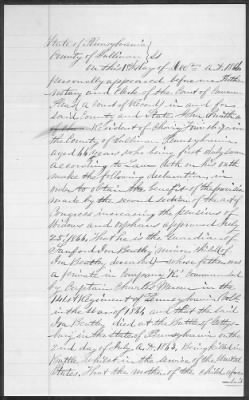 State of Pennsylvania
County of Sullivan SS
On this day of A.D. 1866
personally appeared before me Prothonotary
and Clerk of the Court of Common
Pleas, a court of Record in and for
said County and State John
a Resident of in
the County of Sullivan Pennsylvania
aged 46 years, who being first duly sworn
according to Law doth on his oath
make the following declaration, in
order to obtain the benefits of the provision
made by the second section of the act of
Congress increasing the pensions of
Widows and orphans approved July
25, 1866, That he is the Guardian of
Sanford Jon Beatley, minor child of
Jon Beatley deceased whose father was
a private in Company K Commanded
by Captain Charles Mercur in the
141st Regiment of Pennsylvania Vols
in the War of 1861 and that the said
Jon Beatley died at the Battle of Gettysburg
in the State of Pennsylvania on the
2nd day of July A.D. 1863, Being killed in
Battle whilst in the service of the United
States. That the mother of the child